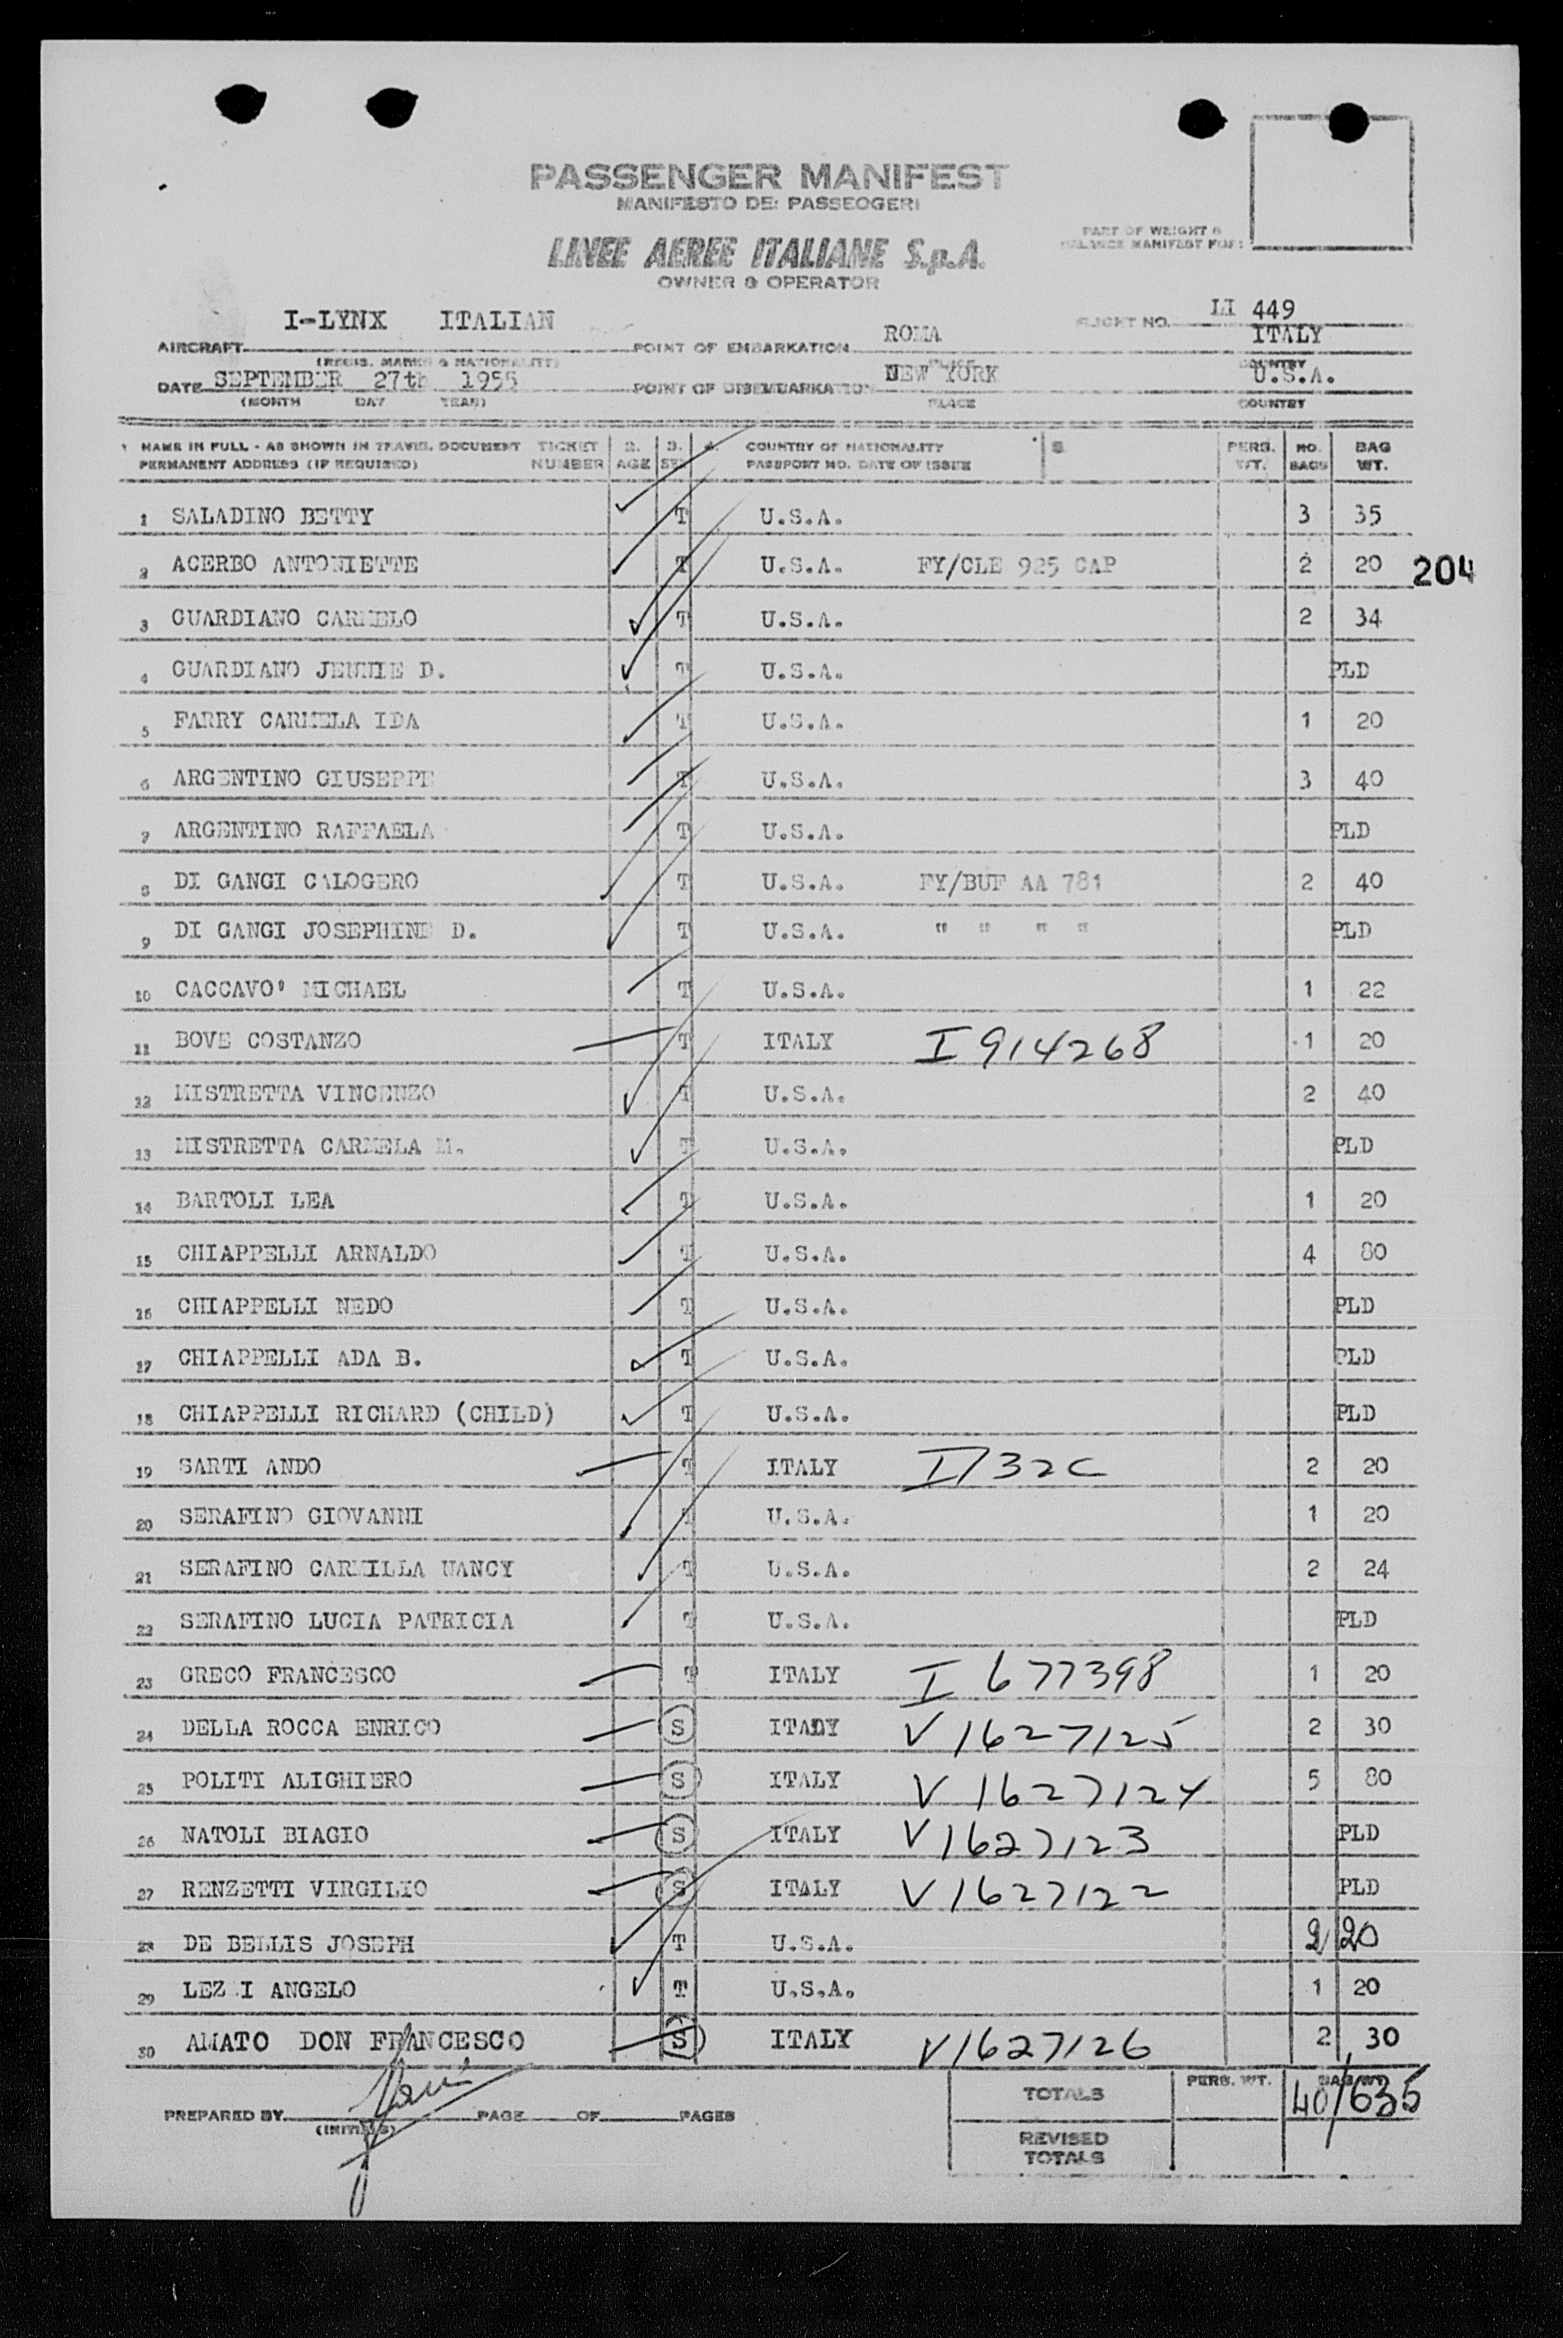 PASSENGER MANIFEST
MANIFESTO DEI PASSEOGERI
LINEE AEREE ITALIANE S.p.A.
OWNER & OPERATOR
PART OF WEIGHT &
BALANCE MANIFEST FOR:
AIRCRAFT I-LYNX ITALIAN POINT OF EMBARKATION ROMA FLIGHT NO. LI 449 ITALY
(REGIS. MARKS & NATIONALITY) PLACE COUNTRY
DATE SEPTEMBER 27th 1955 POINT OF DISEMBARKATION NEW YORK U.S.A.
(MONTH DAY YEAR) PLACE COUNTRY
1 NAME IN FULL - AS SHOWN IN TRAVEL DOCUMENT TICKET 2. 3. 4. COUNTRY OF NATIONALITY 5 PERS. NO. BAG
PERMANENT ADDRESS (IF REQUIRED) NUMBER AGE SEX PASSPORT NO. DATE OF ISSUE WT. BAGS WT.
1 SALADINO BETTY T U.S.A. 3 35
2 ACERBO ANTONIETTE T U.S.A. FY/CLE 925 CAP 2 20 204
3 GUARDIANO CARMELO T U.S.A. 2 34
4 GUARDIANO JENNIE D. T U.S.A. PLD
5 FARRY CARMELA IDA T U.S.A. 1 20
6 ARGENTINO GIUSEPPE T U.S.A. 3 40
7 ARGENTINO RAFFAELA T U.S.A. PLD
8 DI GANGI CALOGERO T U.S.A. FY/BUF AA 781 2 40
9 DI GANGI JOSEPHINE D. T U.S.A. " " " " PLD
10 CACCAVO' MICHAEL T U.S.A. 1 22
11 BOVE COSTANZO T ITALY I 914268 1 20
12 MISTRETTA VINCENZO T U.S.A. 2 40
13 MISTRETTA CARMELA M. T U.S.A. PLD
14 BARTOLI LEA T U.S.A. 1 20
15 CHIAPPELLI ARNALDO T U.S.A. 4 80
16 CHIAPPELLI NEDO T U.S.A. PLD
17 CHIAPPELLI ADA B. T U.S.A. PLD
18 CHIAPPELLI RICHARD (CHILD) T U.S.A. PLD
19 SARTI ANDO T ITALY I732C 2 20
20 SERAFINO GIOVANNI T U.S.A. 1 20
21 SERAFINO CARMILLA NANCY T U.S.A. 2 24
22 SERAFINO LUCIA PATRICIA T U.S.A. PLD
23 GRECO FRANCESCO T ITALY I 677398 1 20
24 DELLA ROCCA ENRICO S ITALY V 1627125 2 30
25 POLITI ALIGHIERO S ITALY V 1627124 5 80
26 NATOLI BIAGIO S ITALY V1627123 PLD
27 RENZETTI VIRGILIO S ITALY V 1627122 PLD
28 DE BELLIS JOSEPH T U.S.A. 2 20
29 ANGELO T U.S.A. 1 20
30 AMATO DON FRANCESCO S ITALY V1627126 2 30
TOTALS PERS. WT. BAG WT. 40/635
PREPARED BY PAGE OF PAGES
(INITIALS)
REVISED
TOTALS